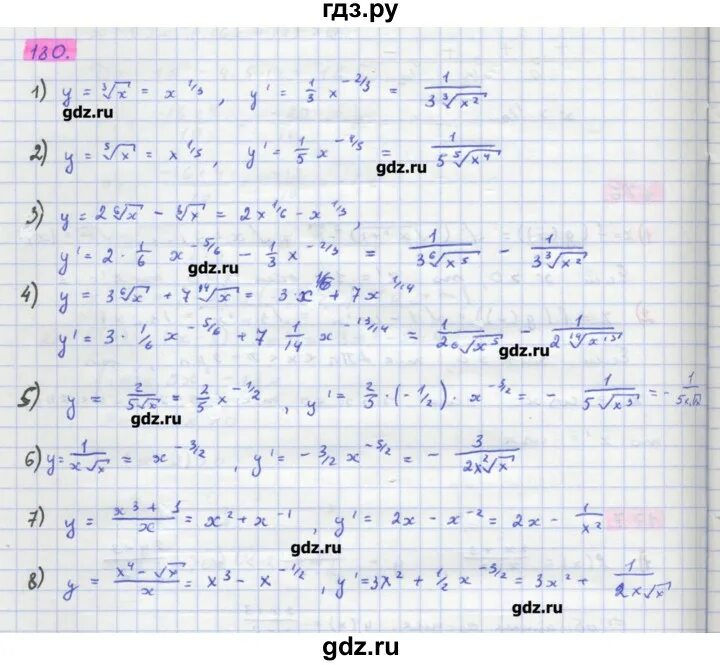 гдз.ру
180.
1) y = ∛x = x^{1/3}, y' = 1/3 x^{-2/3} = 1/(3∛x²)
gdz.ru
gdz.ru
2) y = ⁵√x = x^{1/5}, y' = 1/5 x^{-4/5} = 1/(5 ⁵√x⁴)
gdz.ru
3) y = 2 ⁶√x - ∛x = 2x^{1/6} - x^{1/3},
y' = 2 · 1/6 x^{-5/6} - 1/3 x^{-2/3} = 1/(3 ⁶√x⁵) - 1/(3 ∛x²)
gdz.ru
4) y = 3 ⁶√x + 7 ¹⁴√x = 3x^{1/6} + 7x^{1/14}
y' = 3 · 1/6 x^{-5/6} + 7 1/14 x^{-13/14} = 1/(2 ⁶√x⁵) - 1/(2 ¹⁴√x¹³)
gdz.ru
5) y = 2/(5√x) = 2/5 x^{-1/2}, y' = 2/5 · (-1/2) · x^{-3/2} = - 1/(5√x³) = - 1/(5x√x)
gdz.ru
6) y = 1/(x√x) = x^{-3/2}, y' = -3/2 x^{-5/2} = - 3/(2x²√x)
7) y = (x³ + 1)/x = x² + x^{-1}, y' = 2x - x^{-2} = 2x - 1/x²
gdz.ru
8) y = (x⁴ - √x)/x = x³ - x^{-1/2}, y' = 3x² + 1/2 x^{-3/2} = 3x² + 1/(2x√x)
gdz.ru
gdz.ru
gdz.ru